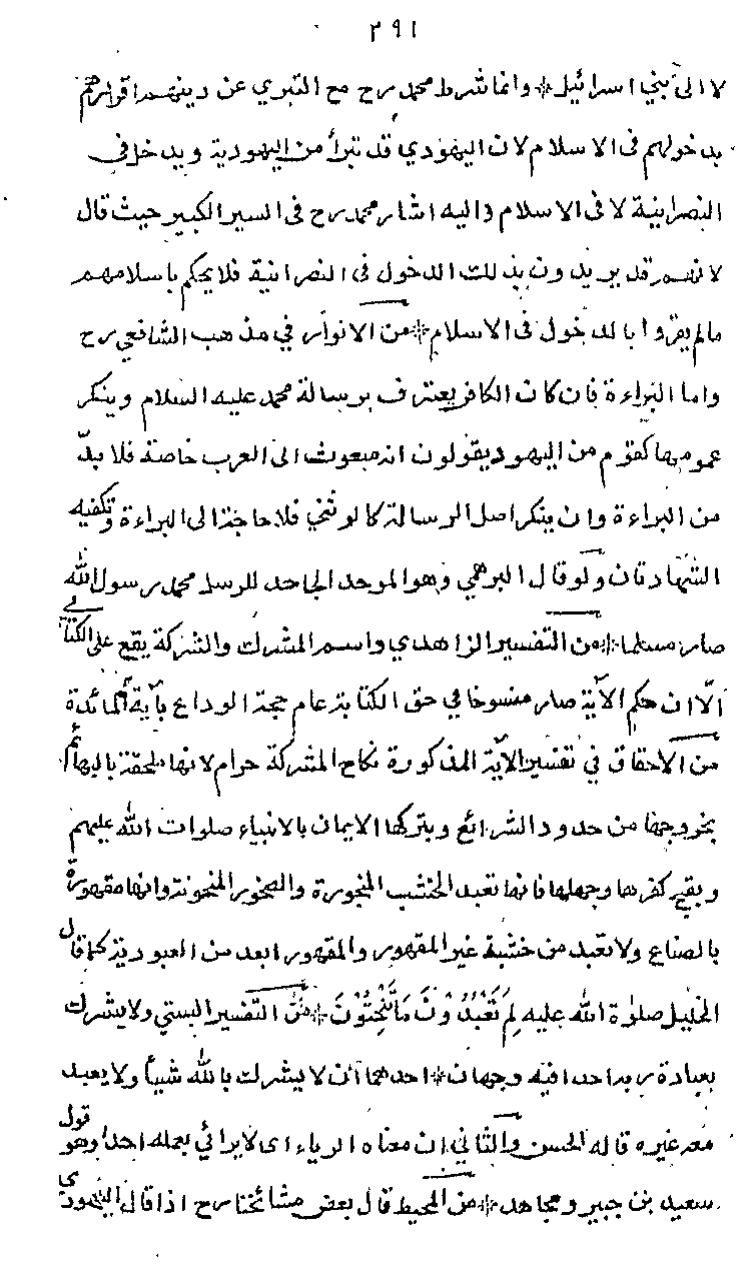 ٢٩١
لا الى بني اسرائيل * وانما شرط محمد رح مع التبري عن دينهم اقرارهم
بدخولهم فى الاسلام لان اليهودي قد تبرأ من اليهودية ويدخل في
النصرانية لا فى الاسلام واليه اشار محمد رح فى السير الكبير حيث قال
لانهم قد يريدون بذلك الدخول فى النصرانية فلا يحكم باسلامهم
مالم يقروا بالدخول فى الاسلام * من الانوار في مذهب الشافعي رح
واما البراءة فان كان الكافر يعترف برسالة محمد عليه السلام وينكر
عمومها كقوم من اليهود يقولون انه مبعوث الى العرب خاصة فلا بدّ
من البراءة وان ينكر اصل الرسالة كالوثني فلا حاجة الى البراءة وتكفيه
الشهادتان ولو قال البرهمي وهو الموحد الجاحد للرسل محمد رسول الله
صار مسلما * من التفسير الزاهدي واسم المشرك والشركة يقع على الكتابي
الّا ان حكم الآية صار منسوخا في حق الكتابة عام حجة الوداع بآية المائدة
من الاحقاق في تفسير الآية المذكورة نكاح المشركة حرام لانها ملحقة بالبهائم
بخروجها من حدود الشرائع وبتركها الايمان بالانبياء صلوات الله عليهم
وبقبح كفرها وجهلها فانها تعبد الخشب المنجورة والصخور المنحوتة وانها مقهورة
بالصناع ولا تعبد من خشبة غير المقهور والمقهور ابعد من العبودية كما قال
الخليل صلوة الله عليه لِمَ تَعْبُدُوْنَ مَا تَنْحِتُوْنَ * من التفسير البستي ولا يشرك
بعبادة ربه احدا فيه وجهان * احدهما ان لا يشرك بالله شيأ ولا يعبد
معه غيره قاله الحسن والثاني ان معناه الرياء اى لا يرائي بعمله احدا وهو قول
سعيد بن جبير ومجاهد * من المحيط قال بعض مشائخنا رح اذا قال اليهودى